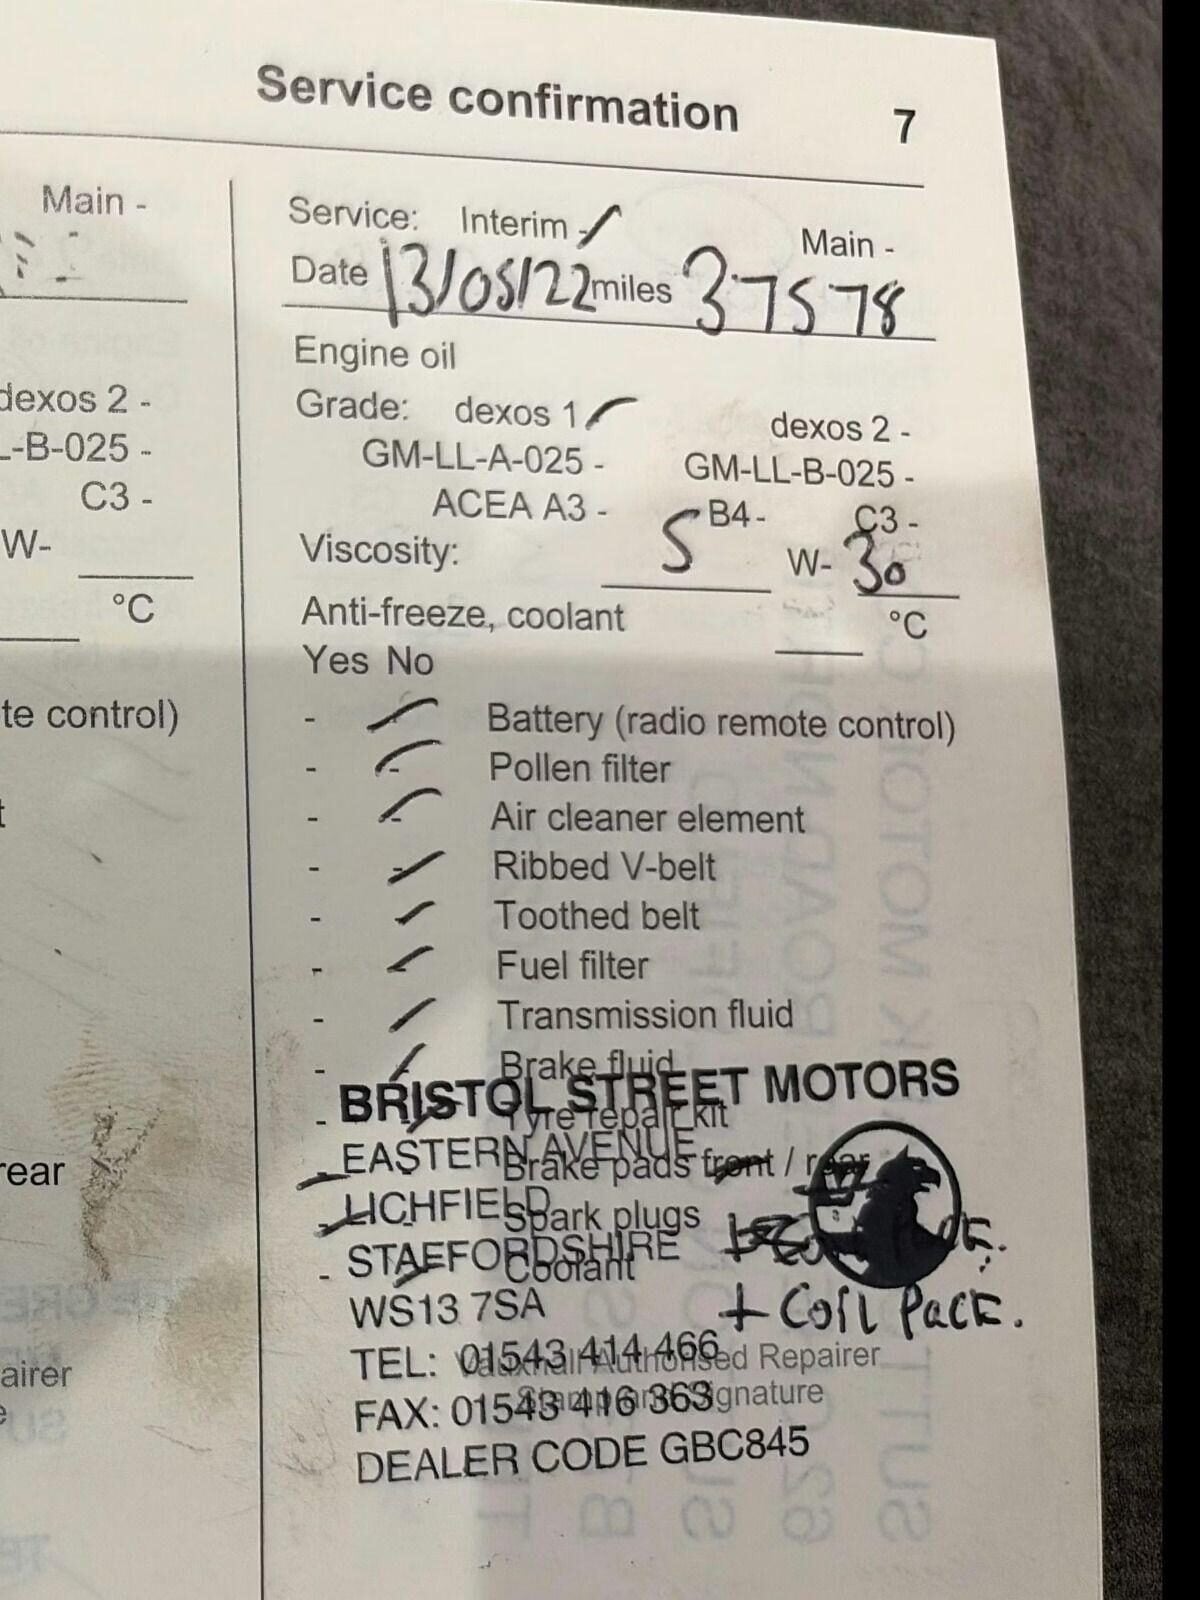 Service confirmation 7
Main -
dexos 2 -
L-B-025 -
C3 -
W-
°C
te control)
t
rear
airer
e
Service: Interim - Main -
Date 13/05/22 miles 37578
Engine oil
Grade: dexos 1 dexos 2 -
GM-LL-A-025 - GM-LL-B-025 -
ACEA A3 - B4 - C3 -
Viscosity: 5 W- 30
Anti-freeze, coolant °C
Yes No
- - Battery (radio remote control)
- - Pollen filter
- - Air cleaner element
- - Ribbed V-belt
- - Toothed belt
- - Fuel filter
- - Transmission fluid
- - Brake fluid
BRISTOL STREET MOTORS
- - Tyre repair kit
EASTERN AVENUE
- - Brake pads front / rear
LICHFIELD
- - Spark plugs
STAFFORDSHIRE
- - Coolant
WS13 7SA
+ Coil Pack.
TEL: 01543 414 466
Vauxhall Authorised Repairer
Stamp and Signature
FAX: 01543 416 363
DEALER CODE GBC845